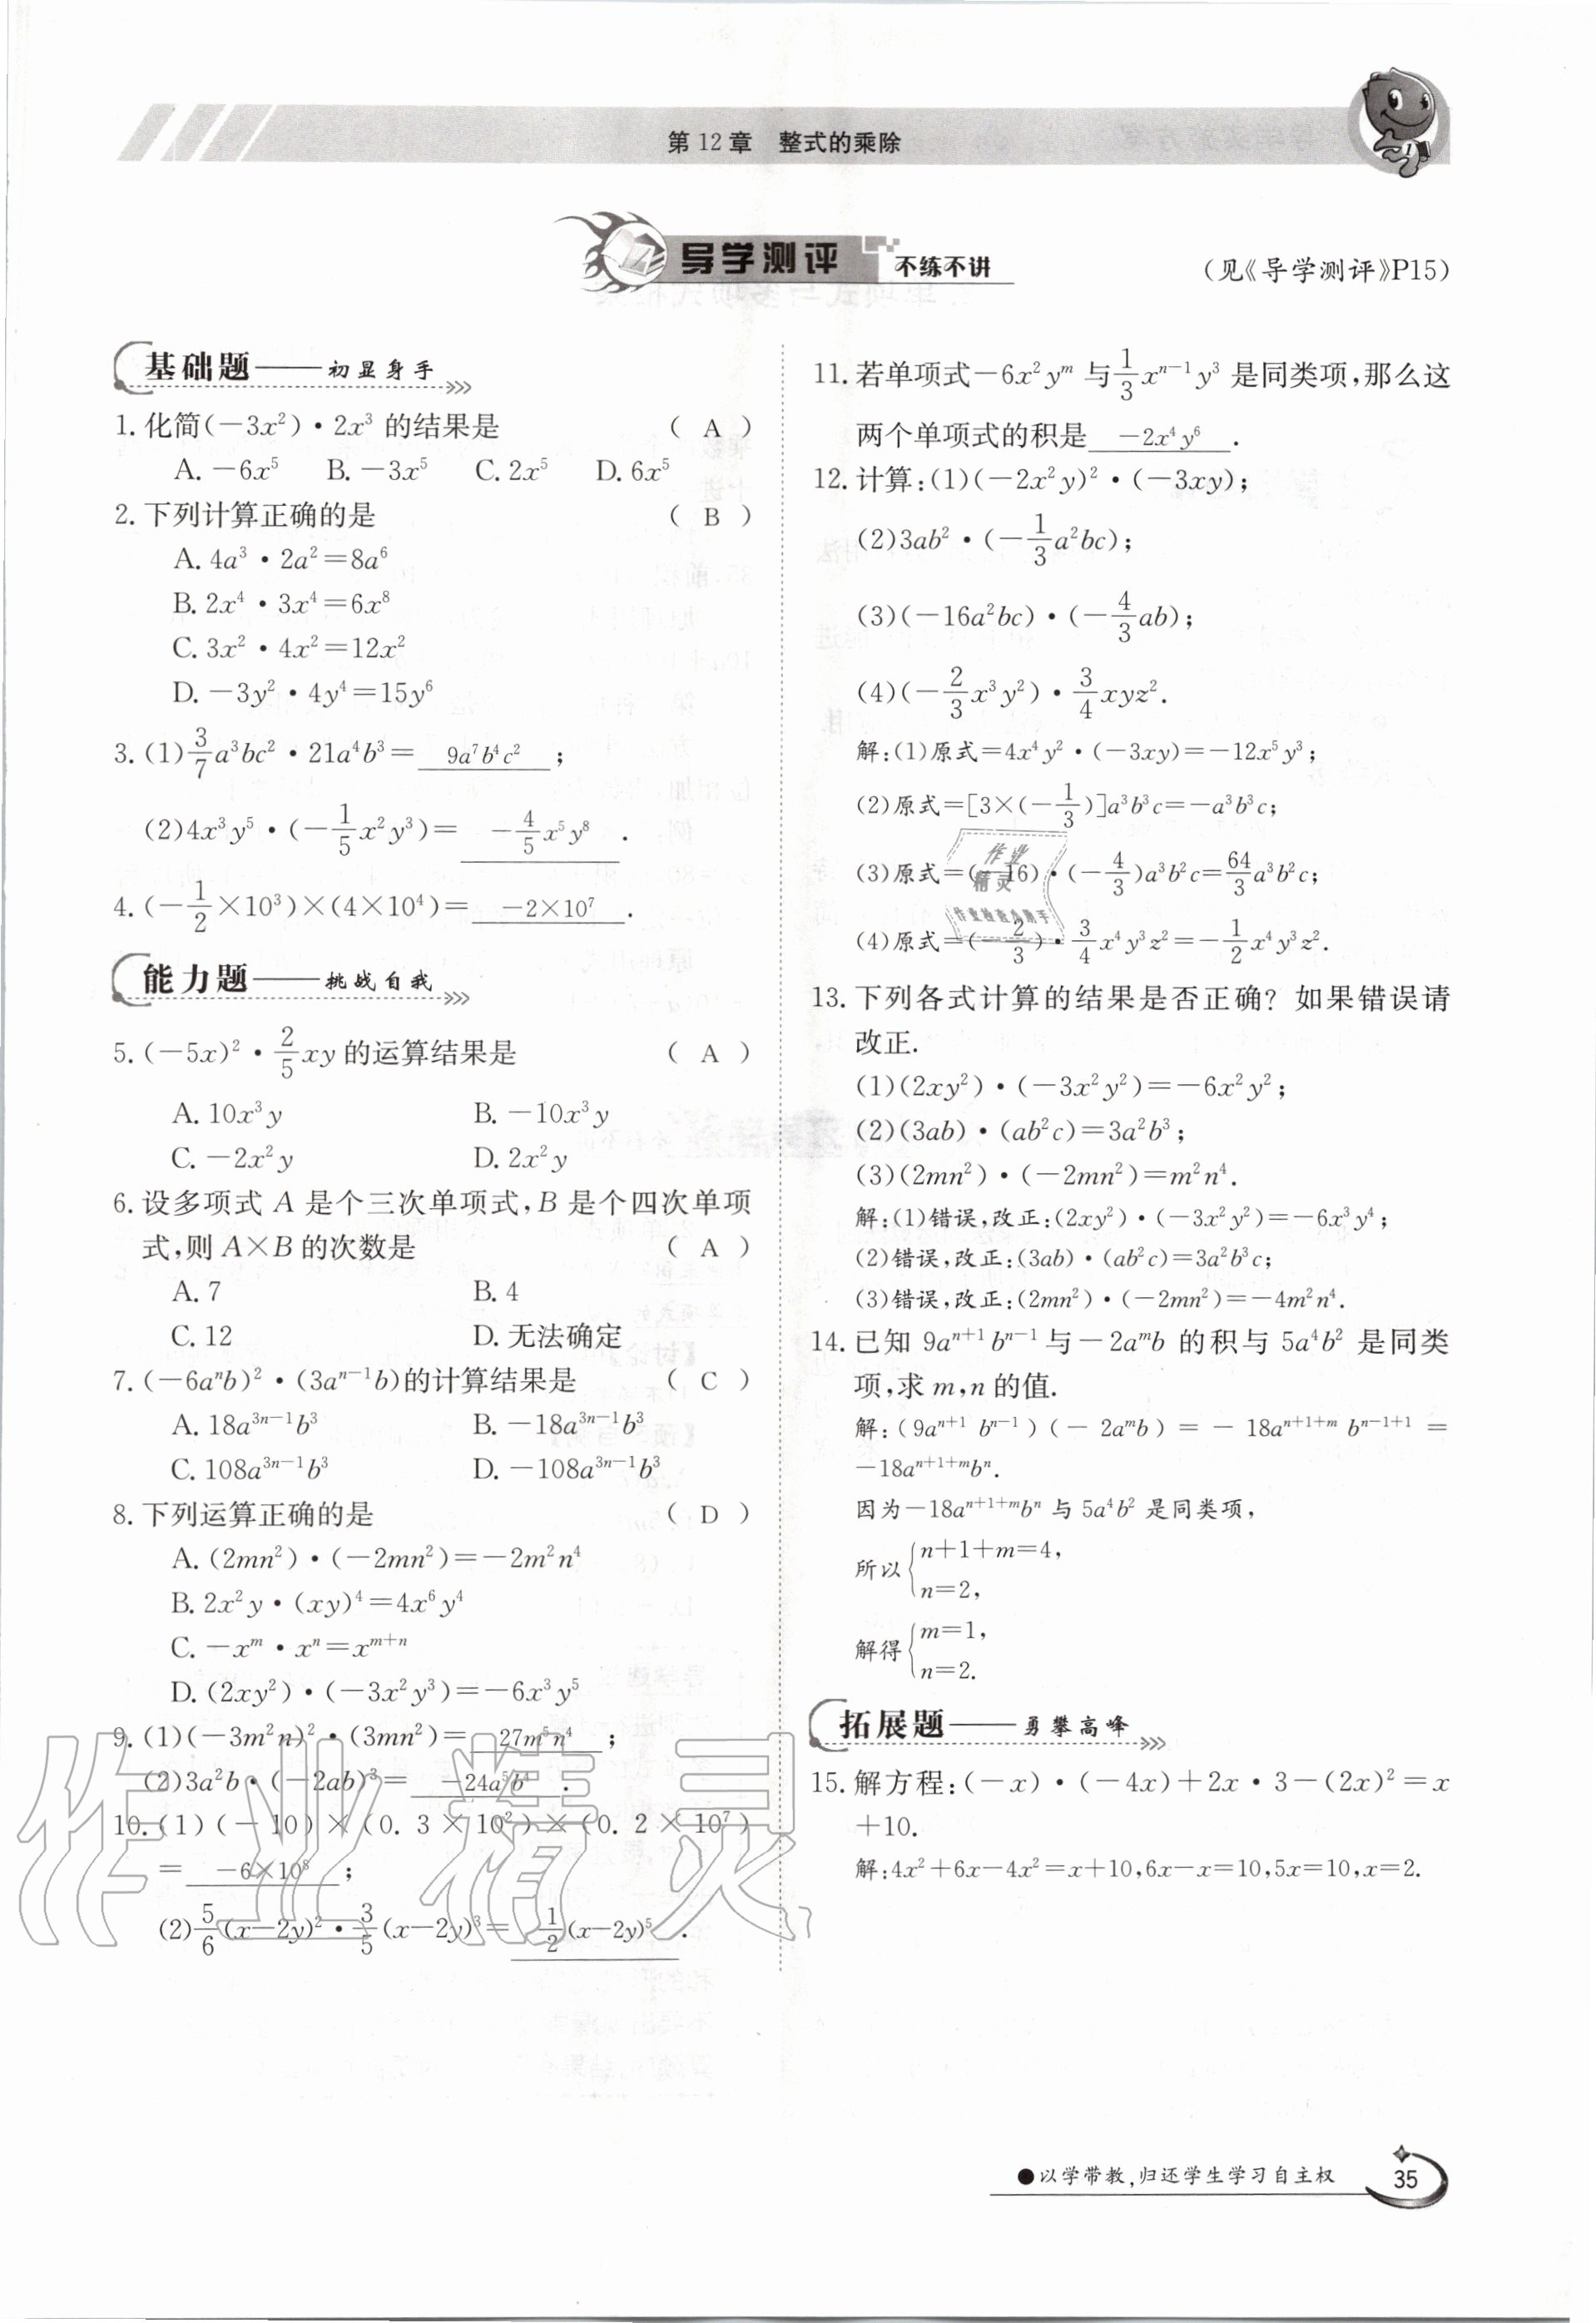 第12章 整式的乘除
导学测评 不练不讲
(见《导学测评》P15)
基础题——初显身手
1. 化简(-3x²)·2x³ 的结果是 ( A )
A. -6x⁵ B. -3x⁵ C. 2x⁵ D. 6x⁵
2. 下列计算正确的是 ( B )
A. 4a³·2a²=8a⁶
B. 2x⁴·3x⁴=6x⁸
C. 3x²·4x²=12x²
D. -3y²·4y⁴=15y⁶
3. (1) 3/7 a³bc²·21a⁴b³= 9a⁷b⁴c² ;
(2)4x³y⁵·(-1/5 x²y³)= -4/5 x⁵y⁸ .
4. (-1/2×10³)×(4×10⁴)= -2×10⁷ .
能力题——挑战自我
5. (-5x)²·2/5 xy 的运算结果是 ( A )
A. 10x³y B. -10x³y
C. -2x²y D. 2x²y
6. 设多项式 A 是个三次单项式,B 是个四次单项
式,则 A×B 的次数是 ( A )
A. 7 B. 4
C. 12 D. 无法确定
7. (-6aⁿb)²·(3aⁿ⁻¹b)的计算结果是 ( C )
A. 18a³ⁿ⁻¹b³ B. -18a³ⁿ⁻¹b³
C. 108a³ⁿ⁻¹b³ D. -108a³ⁿ⁻¹b³
8. 下列运算正确的是 ( D )
A. (2mn²)·(-2mn²)=-2m²n⁴
B. 2x²y·(xy)⁴=4x⁶y⁴
C. -xᵐ·xⁿ=xᵐ⁺ⁿ
D. (2xy²)·(-3x²y³)=-6x³y⁵
9. (1)(-3m²n)²·(3mn²)= 27m⁵n⁴ ;
(2)3a²b·(-2ab)³= -24a⁵b⁴ .
10. (1)(-10)×(0.3×10²)×(0.2×10⁷)
= -6×10⁸ ;
(2) 5/6 (x-2y)²·3/5 (x-2y)³= 1/2 (x-2y)⁵ .
11. 若单项式-6x²yᵐ 与 1/3 xⁿ⁻¹y³ 是同类项,那么这
两个单项式的积是 -2x⁴y⁶ .
12. 计算:(1)(-2x²y)²·(-3xy);
(2)3ab²·(-1/3 a²bc);
(3)(-16a²bc)·(-4/3 ab);
(4)(-2/3 x³y²)·3/4 xyz².
解:(1)原式=4x⁴y²·(-3xy)=-12x⁵y³;
(2)原式=[3×(-1/3)]a³b³c=-a³b³c;
(3)原式=(-16)·(-4/3)a³b²c=64/3 a³b²c;
(4)原式=(-2/3)·3/4 x⁴y³z²=-1/2 x⁴y³z².
13. 下列各式计算的结果是否正确? 如果错误请
改正.
(1)(2xy²)·(-3x²y²)=-6x²y²;
(2)(3ab)·(ab²c)=3a²b³;
(3)(2mn²)·(-2mn²)=m²n⁴.
解:(1)错误,改正:(2xy²)·(-3x²y²)=-6x³y⁴;
(2)错误,改正:(3ab)·(ab²c)=3a²b³c;
(3)错误,改正:(2mn²)·(-2mn²)=-4m²n⁴.
14. 已知 9aⁿ⁺¹bⁿ⁻¹ 与-2aᵐb 的积与 5a⁴b² 是同类
项,求 m,n 的值.
解:(9aⁿ⁺¹ bⁿ⁻¹)(-2aᵐb)=-18aⁿ⁺¹⁺ᵐ bⁿ⁻¹⁺¹=
-18aⁿ⁺¹⁺ᵐbⁿ.
因为-18aⁿ⁺¹⁺ᵐbⁿ 与 5a⁴b² 是同类项,
所以{n+1+m=4,
n=2,
解得{m=1,
n=2.
拓展题——勇攀高峰
15. 解方程:(-x)·(-4x)+2x·3-(2x)²=x
+10.
解:4x²+6x-4x²=x+10,6x-x=10,5x=10,x=2.
作业
精灵
作业检查小助手
作业精灵
●以学带教,归还学生学习自主权
35